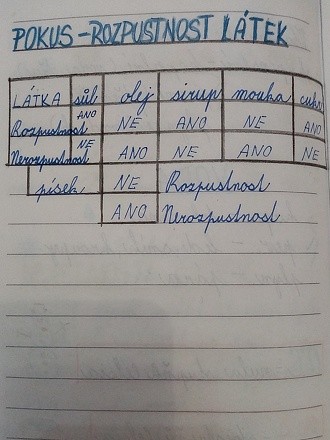 POKUS - ROZPUSTNOST LÁTEK
LÁTKA sůl olej sirup mouka cukr
Rozpustnost ANO NE ANO NE ANO
Nerozpustnost NE ANO NE ANO NE
písek NE Rozpustnost
ANO Nerozpustnost